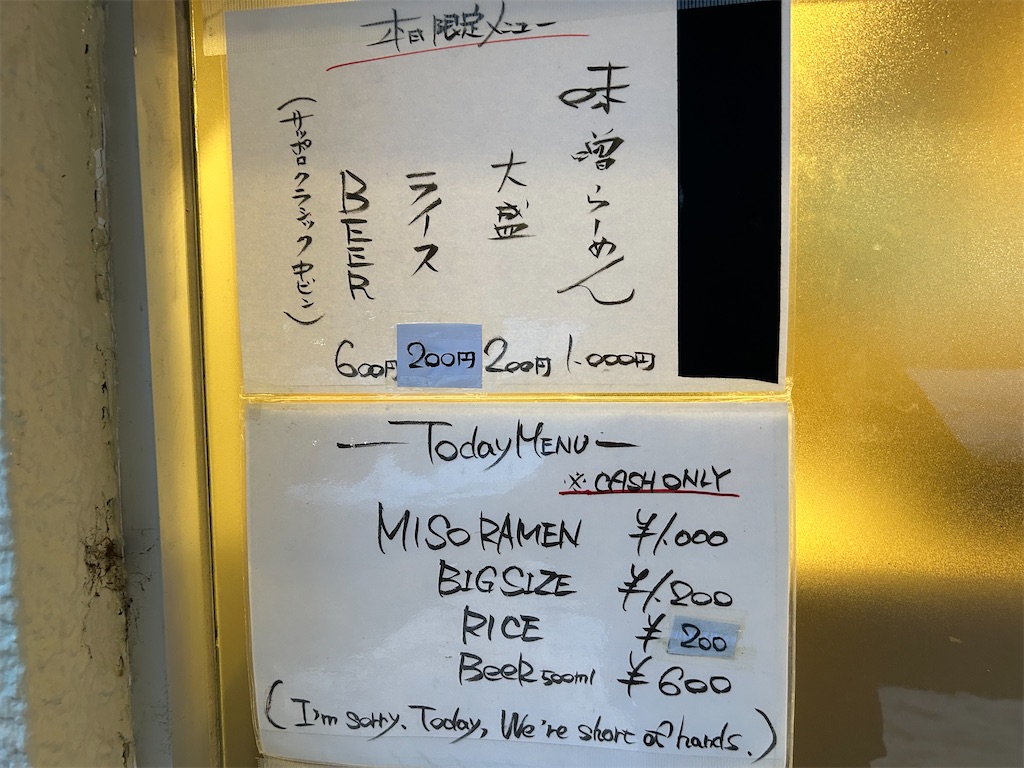 本日限定メニュー
味噌らーめん 1.000円
大盛 200円
ライス 200円
BEER 600円
(サッポロクラシック中ビン)
Today MENU
※CASH ONLY
MISO RAMEN ¥1.000
BIG SIZE ¥1.200
RICE ¥200
BeeR 500ml ¥600
(I'm sorry. Today, We're short of hands.)